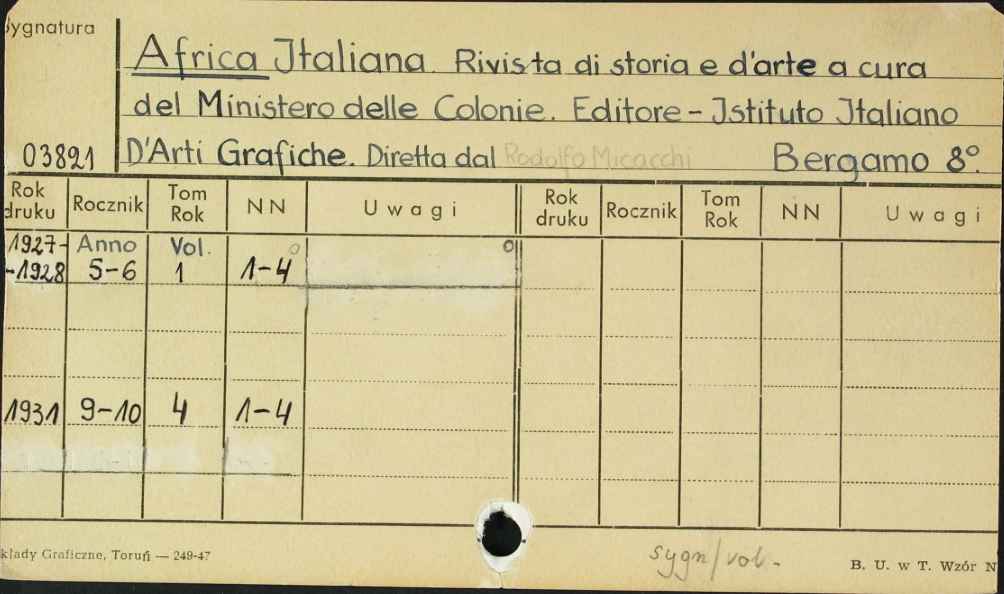 Sygnatura
Africa Italiana. Rivista di storia e d'arte a cura
del Ministero delle Colonie. Editore - Istituto Italiano
03821 D'Arti Grafiche. Diretta dal Rodolfo Micacchi Bergamo 8°.
Rok druku Rocznik Tom Rok NN Uwagi Rok druku Rocznik Tom Rok NN Uwagi
1927- Anno Vol.
-1928 5-6 1 1-4
1931 9-10 4 1-4
kłady Graficzne, Toruń — 249-47
sygn/vol.
B. U. w T. Wzór N